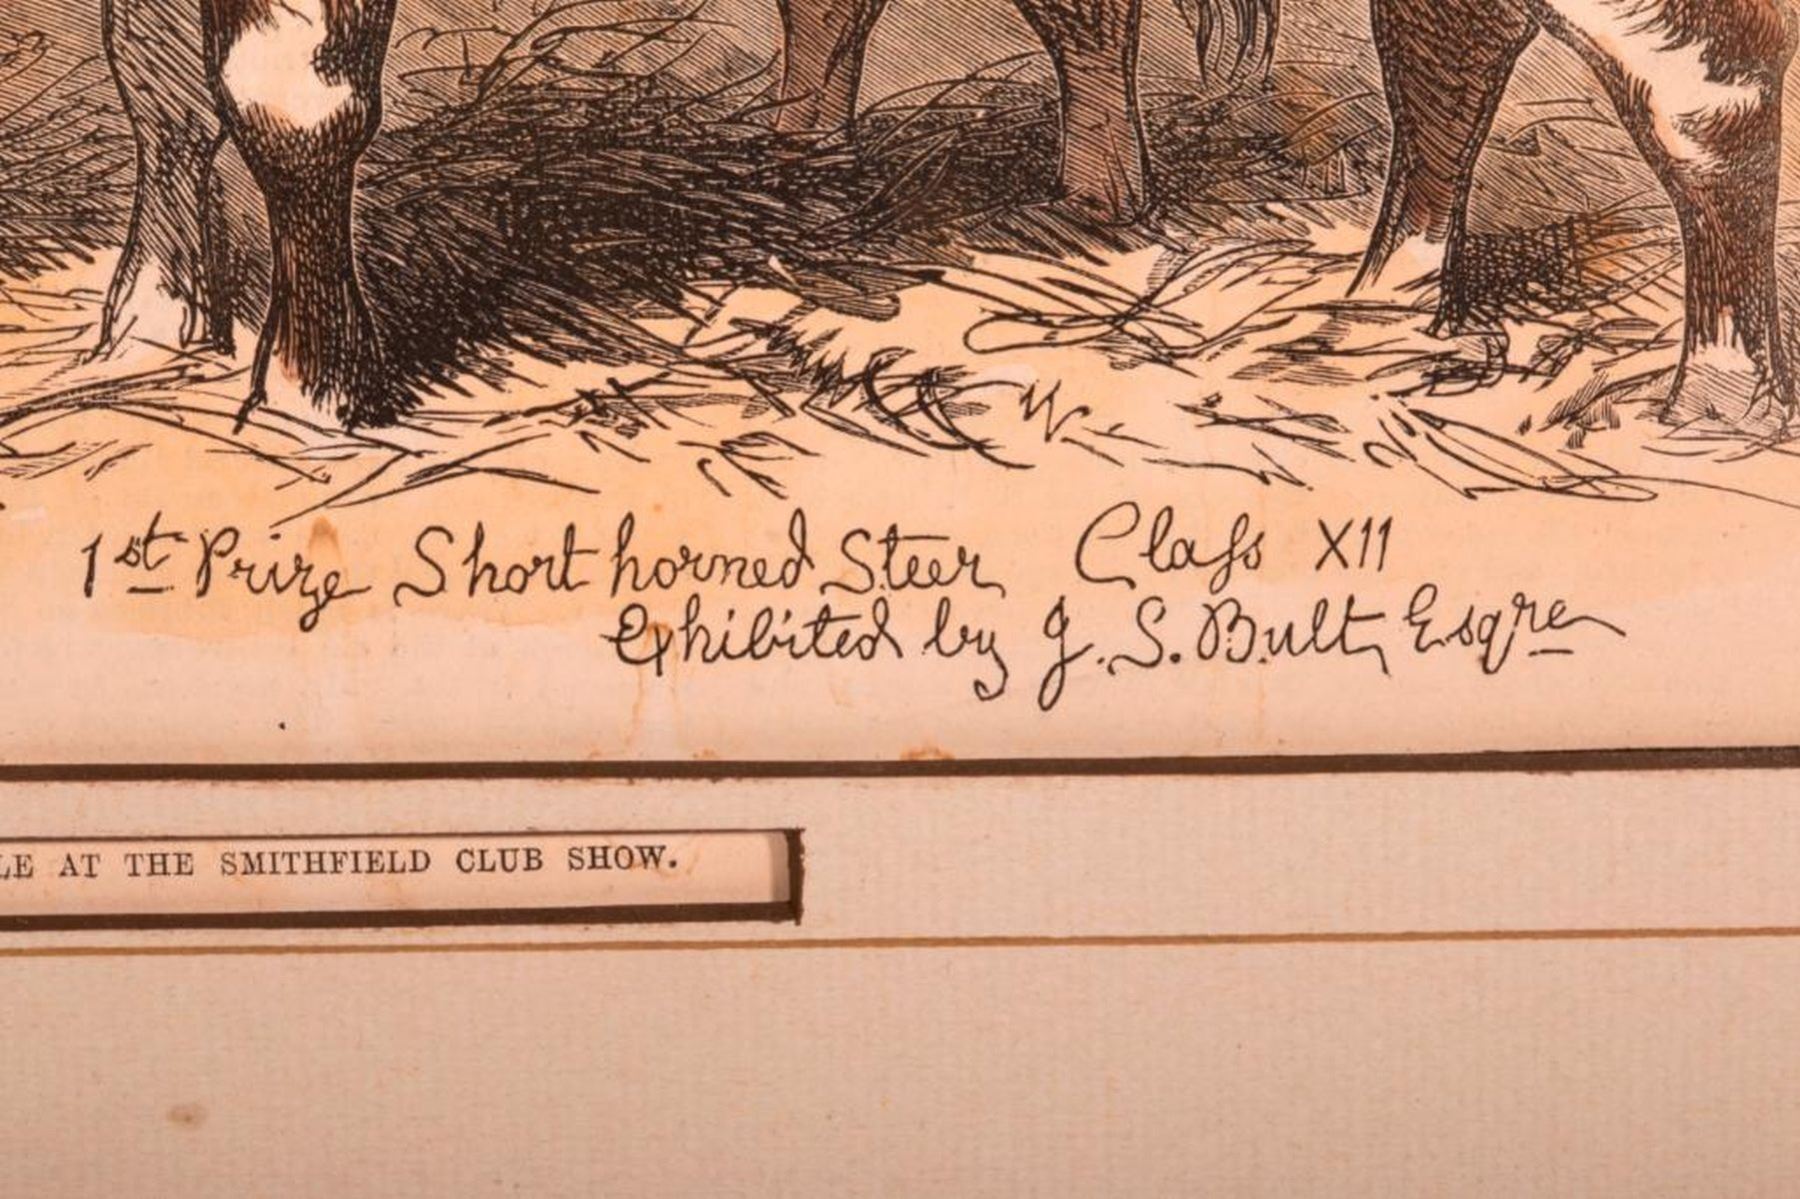 1st Prize Short horned Steer Claſs XII
Exhibited by J. S. Bult, Esqre
LE AT THE SMITHFIELD CLUB SHOW.